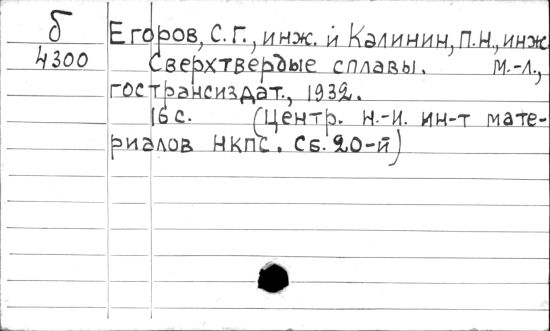 б
4300
Егоров, С.Г., инж. и Калинин, П.Н., инж.
Сверхтвердые сплавы. М.-Л.,
гострансиздат., 1932.
16 с. (Центр. н.-и. ин-т мате-
риалов НКПС. Сб. 20-й)